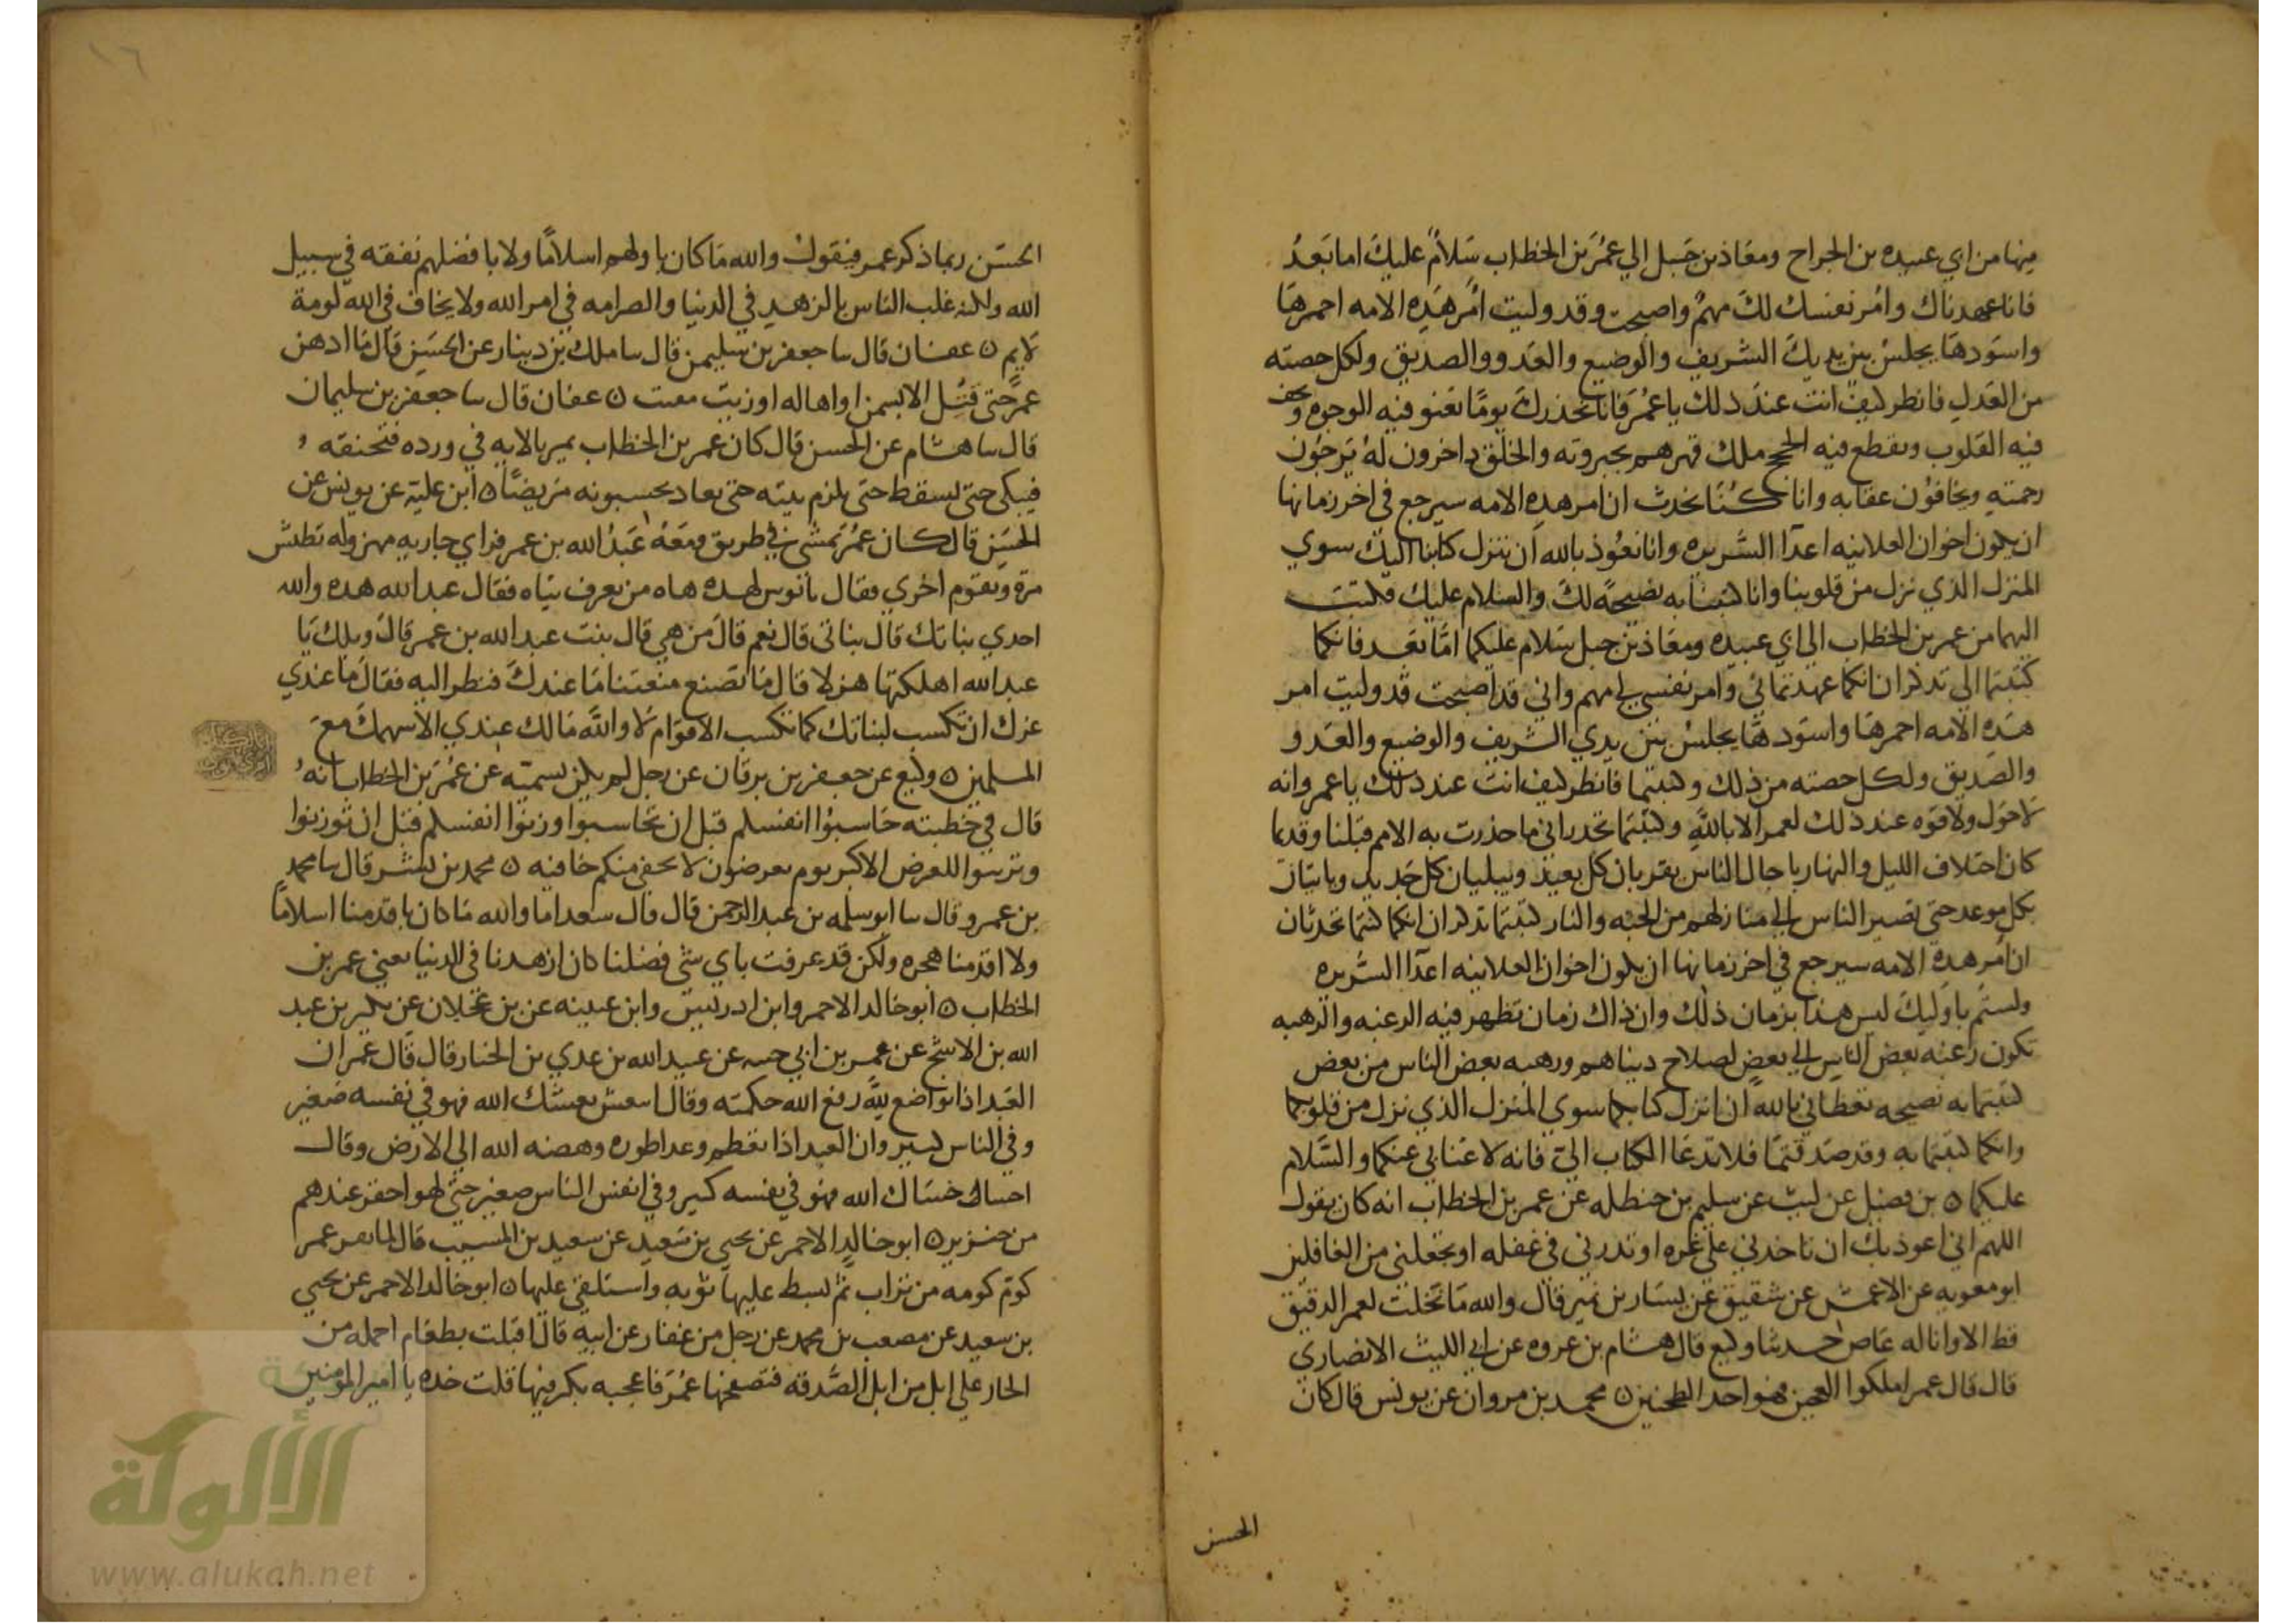 منها من ابي عبيده بن الجراح ومعاذ بن جبل الي عمر بن الخطاب سلام عليك اما بعد
فانا عهدناك وامر نفسك لك مهم واصبحت وقد وليت امر هذه الامه احمرها
واسودها يجلس بين يديك الشريف والوضيع والعدو والصديق ولكل حصته
من العدل فانظر كيف انت عند ذلك يا عمر فانا نحذرك يوما تعنو فيه الوجوه وتجف
فيه القلوب وتقطع فيه الحجج ملك قهرهم بجبروته والخلق داخرون له يرجون
رحمته ويخافون عقابه وانا كنا نحدث ان امر هذه الامه سيرجع في اخر زمانها
ان يكون اخوان العلانيه اعدا السريره وانا نعوذ بالله ان ننزل كتابنا اليك سوي
المنزل الذي نزل من قلوبنا وانا كتبنا به نصيحة لك والسلام عليك فكتب
اليهما من عمر بن الخطاب الي ابي عبيده ومعاذ بن جبل سلام عليكما اما بعد فانكما
كتبتما الي تذكران انكما عهدتماني وامر نفسي لي مهم واني قد اصبحت قد وليت امر
هذه الامه احمرها واسودها يجلس بين يدي الشريف والوضيع والعدو
والصديق ولكل حصته من ذلك وكتبتما فانظر كيف انت عند ذلك يا عمر وانه
لا حول ولا قوه عند ذلك لعمر الا بالله وكتبتما تحذراني ما حذرت به الامم قبلنا وقديما
كان اختلاف الليل والنهار باجال الناس يقربان كل بعيد ويبليان كل جديد وياتيان
بكل موعد حتي تصير الناس الي منازلهم من الجنه والنار كتبتما تذكران انكما كنتما تحدثان
ان امر هذه الامه سيرجع في اخر زمانها ان يكون اخوان العلانيه اعدا السريره
ولستم باوليك ليس هذا بزمان ذلك وان ذاك زمان تظهر فيه الرغبه والرهبه
تكون رغبه بعض الناس الي بعض لصلاح دنياهم ورهبه بعض الناس من بعض
كتبتما به نصيحه تعظاني بالله ان انزل كتابكما سوي المنزل الذي نزل من قلوبكما
وانكما كتبتما به وقد صدقتما فلا تدعا الكتاب الي فانه لا غنا بي عنكما والسلام
عليكما ه بن فضيل عن ليث عن سليم بن حنظله عن عمر بن الخطاب انه كان يقول
اللهم اني اعوذ بك ان تاخذني علي غره او تذرني في غفله او تجعلني من الغافلين
ابو معويه عن الاعمش عن شقيق عن يسار بن نمير قال والله ما نخلت لعمر الدقيق
قط الا وانا له عاص حدثنا وكيع قال هشام بن عروه عن ابي الليث الانصاري
قال قال عمر املكوا العجين فهو احد الطحنين ه محمد بن مروان عن يونس قال كان
الحسن
الحسن ربما ذكر عمر فيقول والله ما كان باولهم اسلاما ولا بافضلهم نفقه في سبيل
الله ولكنه غلب الناس بالزهد في الدنيا والصرامه في امر الله ولا يخاف في الله لومة
لايم ه عفان قال سا جعفر بن سليمن قال سا ملك بن دينار عن الحسن قال ما ادهن
عمر حتي قتل الا بسمن او اهاله او زيت مقتت ه عفان قال سا جعفر بن سليمان
قال سا هشام عن الحسن قال كان عمر بن الخطاب يمر بالايه في ورده فتخنقه
فيبكي حتي يسقط حتي يلزم بيته حتي يعاد يحسبونه مريضا ه ابن علية عن يونس عن
الحسن قال كان عمر يمشي في طريق ومعه عبد الله بن عمر فراي جاريه مهزوله تطيش
مرة وتقوم اخري فقال يابوس لهذه هاه من يعرف تياه فقال عبد الله هذه والله
احدي بناتك قال بناتي قال نعم قال من هي قال بنت عبد الله بن عمر قال ويلك يا
عبد الله اهلكتها هزلا قال ما نصنع منعتنا ما عندك فنظر اليه فقال ما عندي
عزك ان تكسب لبناتك كما تكسب الاقوام لا والله مالك عندي الا سهمك مع
المسلمين ه وكيع عن جعفر بن برقان عن رجل لم يكن يسميه عن عمر بن الخطاب انه
قال في خطبته حاسبوا انفسكم قبل ان تحاسبوا وزنوا انفسكم قبل ان توزنوا
وتزينوا للعرض الاكبر يوم تعرضون لا تخفي منكم خافيه ه محمد بن بشر قال سا محمد
بن عمرو قال سا ابو سلمه بن عبد الرحمن قال قال سعد اما والله ما كان باقدمنا اسلاما
ولا اقدمنا هجره ولكن قد عرفت باي شي فضلنا كان ازهدنا في الدنيا يعني عمر بن
الخطاب ه ابو خالد الاحمر وابن ادريس وابن عيينه عن بن عجلان عن بكير بن عبد
الله بن الاشج عن معمر بن ابي حبيبه عن عبيد الله بن عدي بن الخيار قال قال عمر ان
العبد اذا تواضع لله رفع الله حكمته وقال انتعش نعشك الله فهو في نفسه صغير
وفي الناس كبير وان العبد اذا تعظم وعدا طوره وهصه الله الي الارض وقال
اخسا خساك الله فهو في نفسه كبير وفي انفس الناس صغير حتي لهو احقر عندهم
من خنزير ه ابو خالد الاحمر عن يحيي بن سعيد عن سعيد بن المسيب قال لما نفر عمر
كوم كومه من تراب ثم بسط عليها ثوبه واستلقي عليها ه ابو خالد الاحمر عن يحيي
بن سعيد عن مصعب بن محمد عن رجل من غفار عن ابيه قال اقبلت بطعام احمله من
الجار علي ابل من ابل الصدقه فتصفحها عمر فاعجبه بكر فيها قلت خذه يا امير المومنين
الألوكة
www.alukah.net